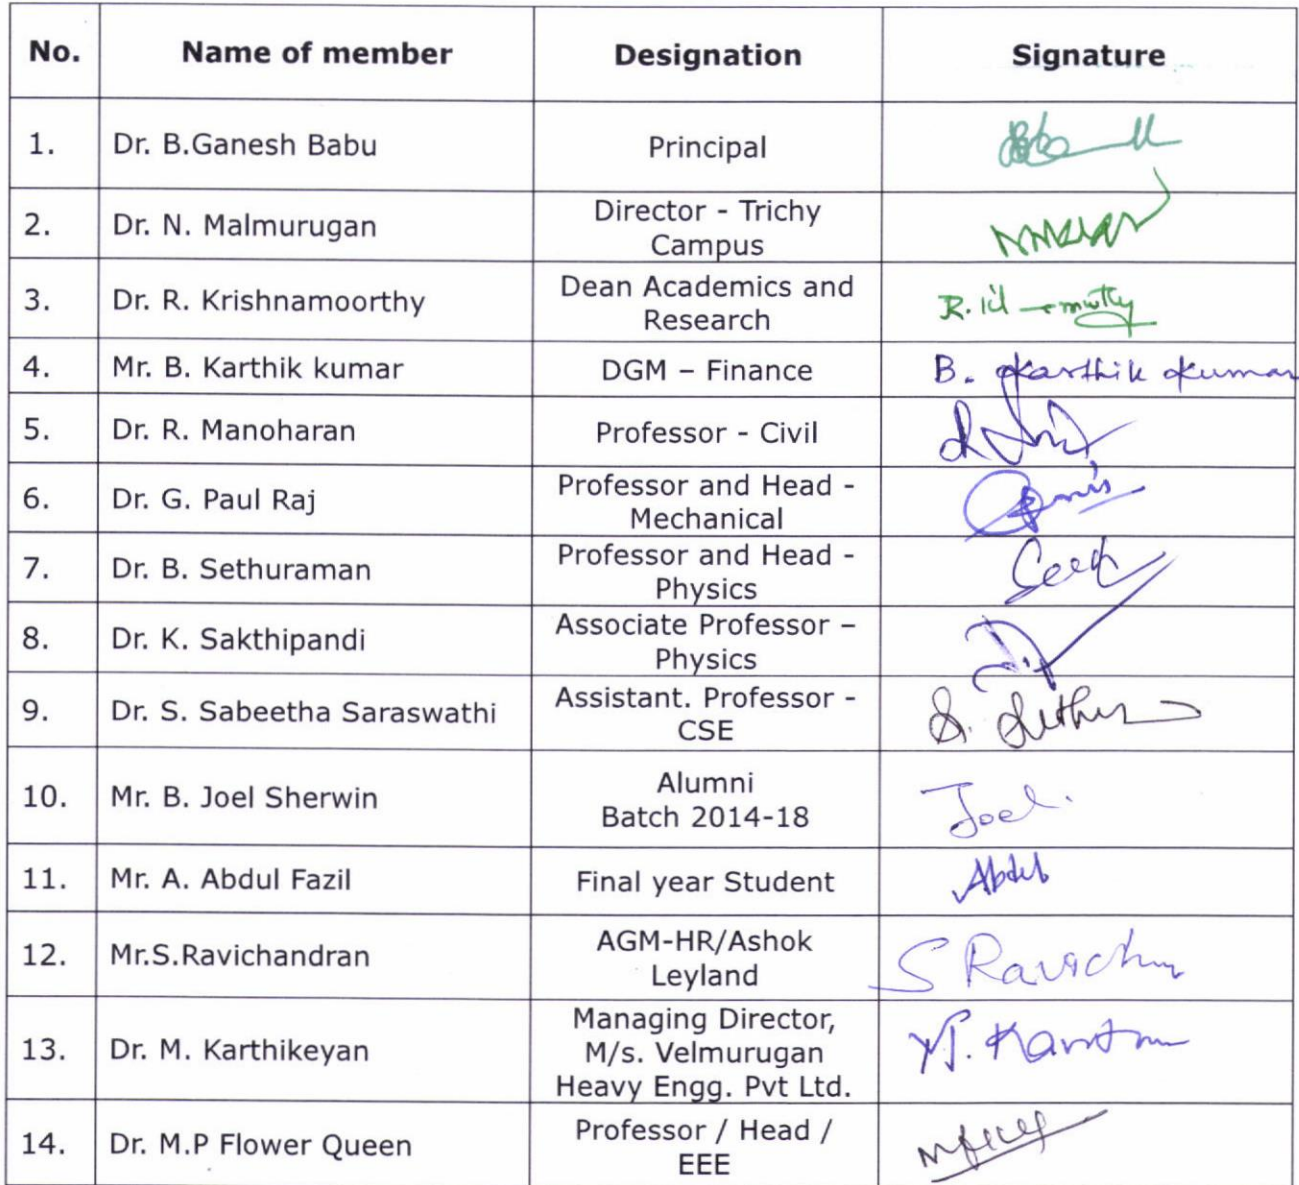 No. Name of member Designation Signature
1. Dr. B.Ganesh Babu Principal
2. Dr. N. Malmurugan Director - Trichy
Campus
3. Dr. R. Krishnamoorthy Dean Academics and
Research
4. Mr. B. Karthik kumar DGM – Finance B. Karthik Kumar
5. Dr. R. Manoharan Professor - Civil
6. Dr. G. Paul Raj Professor and Head -
Mechanical
7. Dr. B. Sethuraman Professor and Head -
Physics
8. Dr. K. Sakthipandi Associate Professor –
Physics
9. Dr. S. Sabeetha Saraswathi Assistant. Professor -
CSE
10. Mr. B. Joel Sherwin Alumni
Batch 2014-18 Joel.
11. Mr. A. Abdul Fazil Final year Student Abdul
12. Mr.S.Ravichandran AGM-HR/Ashok
Leyland S Ravich
13. Dr. M. Karthikeyan Managing Director,
M/s. Velmurugan
Heavy Engg. Pvt Ltd.
14. Dr. M.P Flower Queen Professor / Head /
EEE